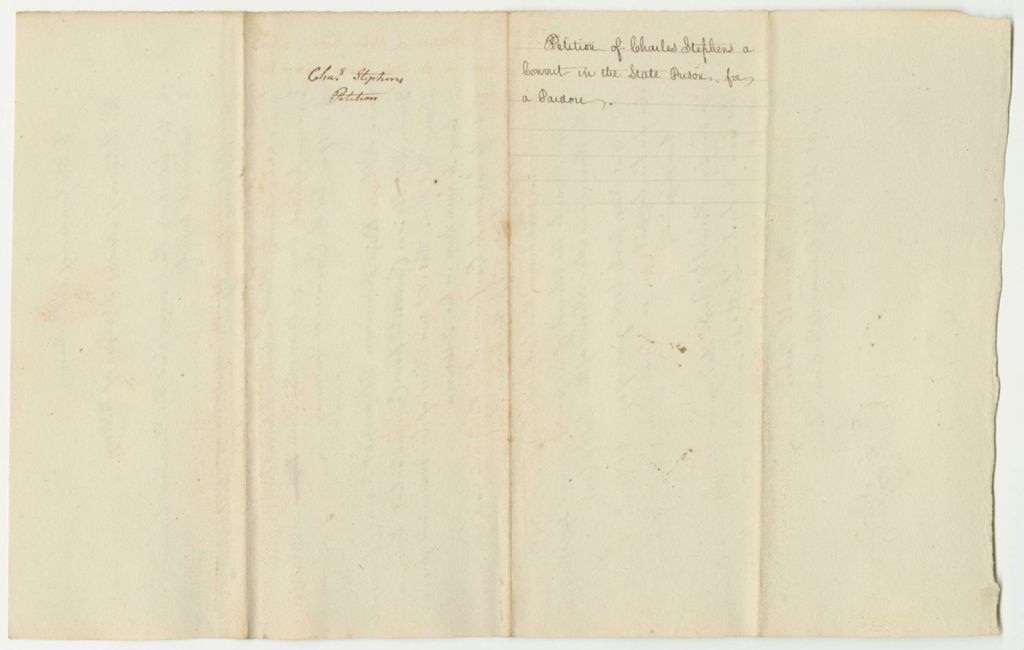 Chas Stephens
Petition
Petition of Charles Stephens a
Convict in the State Prison for
a Pardon.